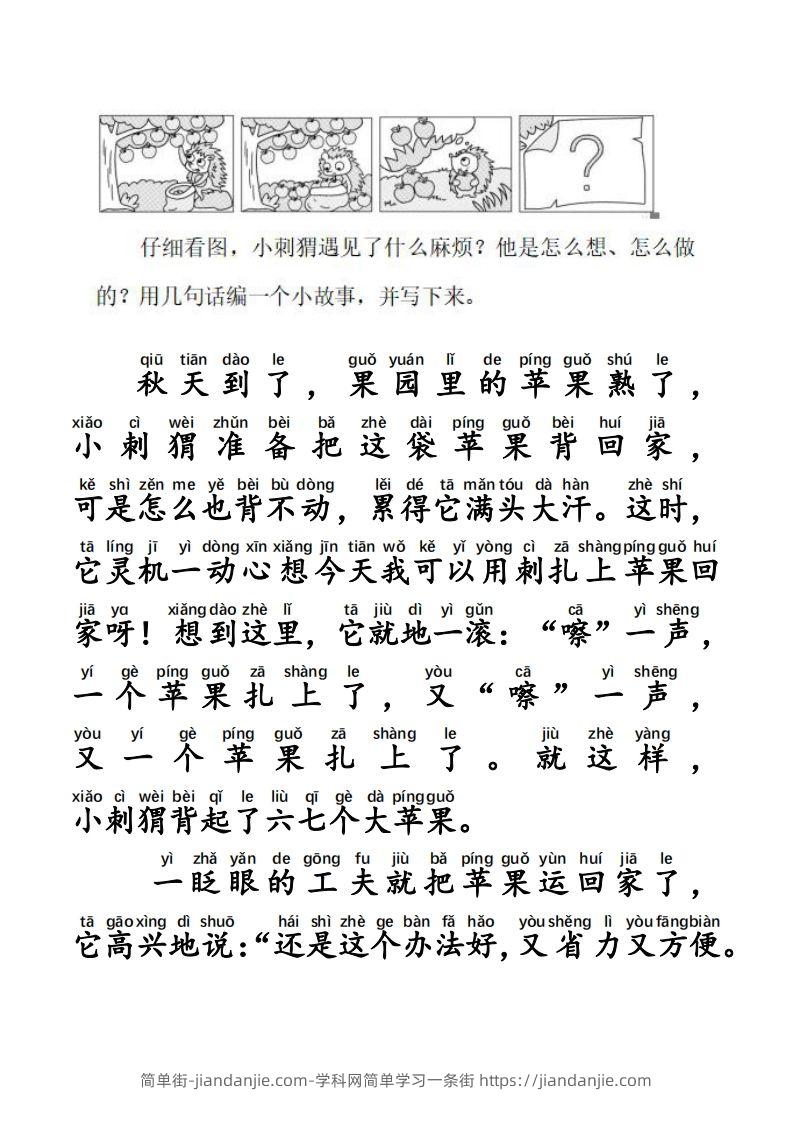 ?
仔细看图，小刺猬遇见了什么麻烦？他是怎么想、怎么做
的？用几句话编一个小故事，并写下来。
qiū tiān dào le guǒ yuán lǐ de píng guǒ shú le
秋天到了，果园里的苹果熟了，
xiǎo cì wèi zhǔn bèi bǎ zhè dài píng guǒ bèi huí jiā
小刺猬准备把这袋苹果背回家，
kě shì zěn me yě bèi bù dòng lěi dé tā mǎn tóu dà hàn zhè shí
可是怎么也背不动，累得它满头大汗。这时，
tā líng jī yì dòng xīn xiǎng jīn tiān wǒ kě yǐ yòng cì zā shàng píng guǒ huí
它灵机一动心想今天我可以用刺扎上苹果回
jiā yɑ xiǎng dào zhè lǐ tā jiù dì yì gǔn cā yì shēng
家呀！想到这里，它就地一滚：“嚓”一声，
yí gè píng guǒ zā shàng le yòu cā yì shēng
一个苹果扎上了，又“嚓”一声，
yòu yí gè píng guǒ zā shàng le jiù zhè yàng
又一个苹果扎上了。就这样，
xiǎo cì wèi bèi qǐ le liù qī gè dà píng guǒ
小刺猬背起了六七个大苹果。
yì zhǎ yǎn de gōng fu jiù bǎ píng guǒ yùn huí jiā le
一眨眼的工夫就把苹果运回家了，
tā gāo xìng dì shuō hái shì zhè ge bàn fǎ hǎo yòu shěng lì yòu fāng biàn
它高兴地说：“还是这个办法好，又省力又方便。
简单街-jiandanjie.com-学科网简单学习一条街 https://jiandanjie.com